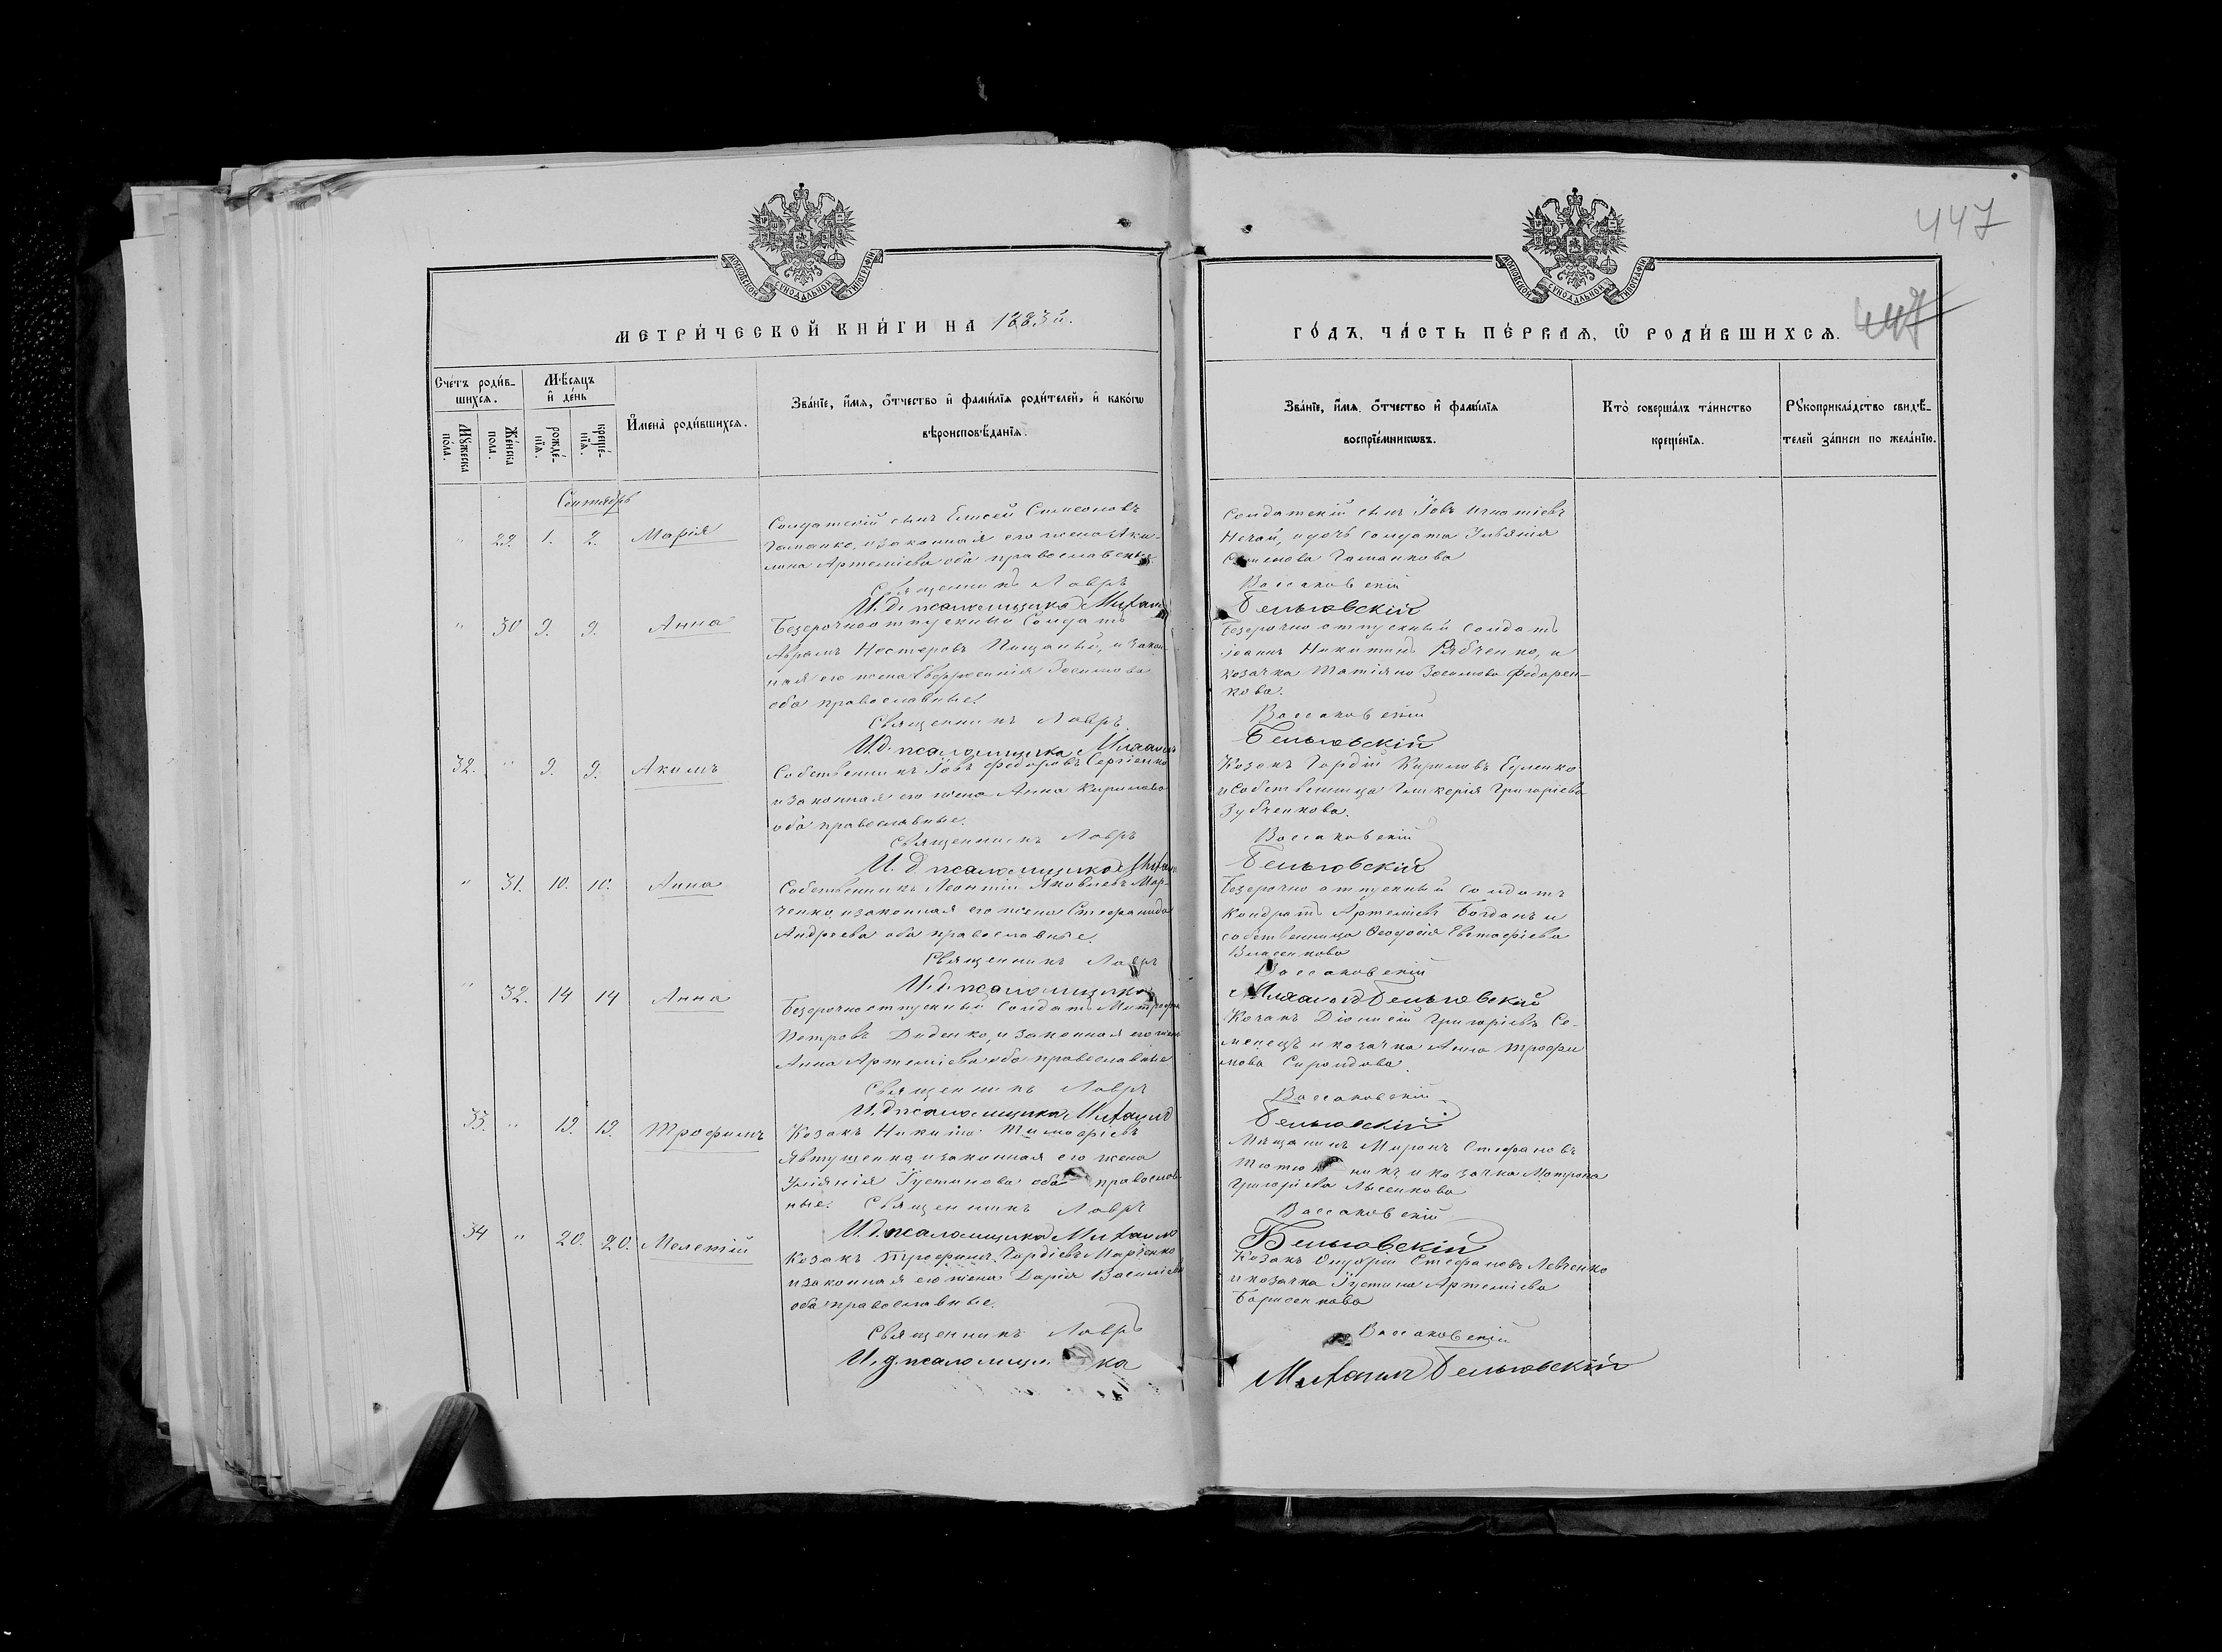 447
447
МОСКОВСКОЙ СѴНОДАЛЬНОЙ ТИПОГРАФІИ
МОСКОВСКОЙ СѴНОДАЛЬНОЙ ТИПОГРАФІИ
МЕТРИ́ЧЕСКОЙ КНИ́ГИ НА 1883й.
ГО́ДЪ, ЧА́СТЬ ПЕ́РВАЯ, Ѿ РОДИ́ВШИХСЯ.
Сче́тъ роди́в-
шихся.
Мѣ́сяцъ
и҆ де́нь
Мꙋ́жеска
по́ла.
Же́нска
пола.
рожде́-
нїя.
креще́-
нїя.
И҆мена̀ роди́вшихся.
Зва́нїе, и҆́мя, ѻ҆́тчество и҆ фами́лїя роди́телей, и҆ како́гѡ
вѣроисповѣ́данїя.
Зва́нїе, и҆́мя, ѻ҆́тчество и҆ фами́лїя
воспрїе́мникѡвъ.
Кто̀ соверша́лъ та́инство
креще́нїя.
Рꙋкоприкла́дство свидѣ́-
телей за́писи по жела́нїю.
Сентябрь
" 29. 1. 2. Марія
Солдатскій сынъ Елисей Симеоновъ
Гаманко, и законная его жена Аки-
лина Артеміева оба православные
Священникъ Лавръ
И. д. псаломщика Михаилъ
Солдатскій сынъ Іовъ Игнатіевъ
Нечай, и дочь солдата Ульянія
Семенова Гаманкова
Вассаковскій
Бельговскій
" 30 9. 9. Анна
Безсрочноотпускный Солдатъ
Аврамъ Несторовъ Пищаный, и закон-
ная его жена Евфросинія Зосимова
оба православные.
Священникъ Лавръ
И.д. псаломщика Михаилъ
Безсрочно отпускный солдатъ
Іоаннъ Никитинъ Рябченко, и
козачка Татіяна Зосимова Федорен-
кова.
Вассаковскій
Бельговскій
32. " 9. 9. Акимъ
Собственникъ Іовъ Федоровъ Сергіенко
и законная его жена Анна Кирилова
оба православные.
Священникъ Лавръ
И. д псаломщика Михаилъ
Козакъ Гордій Кириловъ
и собственница Гликерія Григоріева
Зубченкова.
Вассаковскій
Бельговскій
" 31. 10. 10. Анна
Собственникъ Леонтій Яковлевъ Мар-
ченко, и законная его жена Стефанида
Андреева оба православные.
Священникъ Лавръ
И.д. псаломщика
Безсрочно отпускный солдатъ
Кондратъ Артеміевъ Богданъ и
собственница Ѳеодосія Евстафіева
Власенкова
Вассаковскій
Михаилъ Бельговскій
" 32. 14 14 Анна
Безсрочноотпускный Солдатъ Митрофа
Петровъ Диденко, и законная его жена
Анна Артеміева оба православные
Священникъ Лавръ
И.д псаломщика Михаилъ
Козакъ Діонисій Григоріевъ Се-
менецъ и козачка Анна Трофи
мова
Вассаковскій.
Бельговскій
33. " 19. 19. Трофимъ
Козакъ Никита Тимофѣевъ
Явтушенко, и законная его жена
Уліянія Іустинова оба православ
ные. Священникъ Лавръ
И.д. псаломщика Михаилъ
Мѣщанинъ Миронъ Стефановъ
и козачка Матрона
Григоріева Лысенкова
Вассаковскій
Бельговскій
34 " 20. 20. Мелетій
Козакъ Трофимъ Гордіевъ Марченко
и законная его жена Дарія Василіева
оба православные.
Священникъ Лавръ
И.д псаломщика
Козакъ Онуфрій Стефановъ Левченко
и козачка Іустина Артеміева
Борисенкова
Вассаковскій
Михаилъ Бельговскій